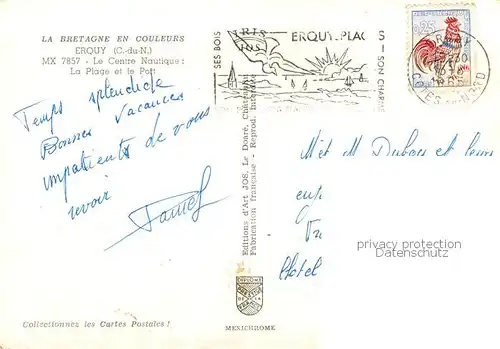 LA BRETAGNE EN COULEURS
ERQUY (C.-du-N.)
MX 7857 - Le Centre Nautique :
La Plage et le Port
Temps splendide
Bonnes Vacances
impatients de vous
revoir
SES BOIS
ERQUY-PLAGES
SON CHARME
0,25
COTES-DU-NORD
Editions d'Art JOS, Le Doaré, Châteaulin
Fabrication française - Reprod. Interdite
M et M Dubois et leurs
Hotel
privacy protection
Datenschutz
MEXICHROME
Collectionnez les Cartes Postales !